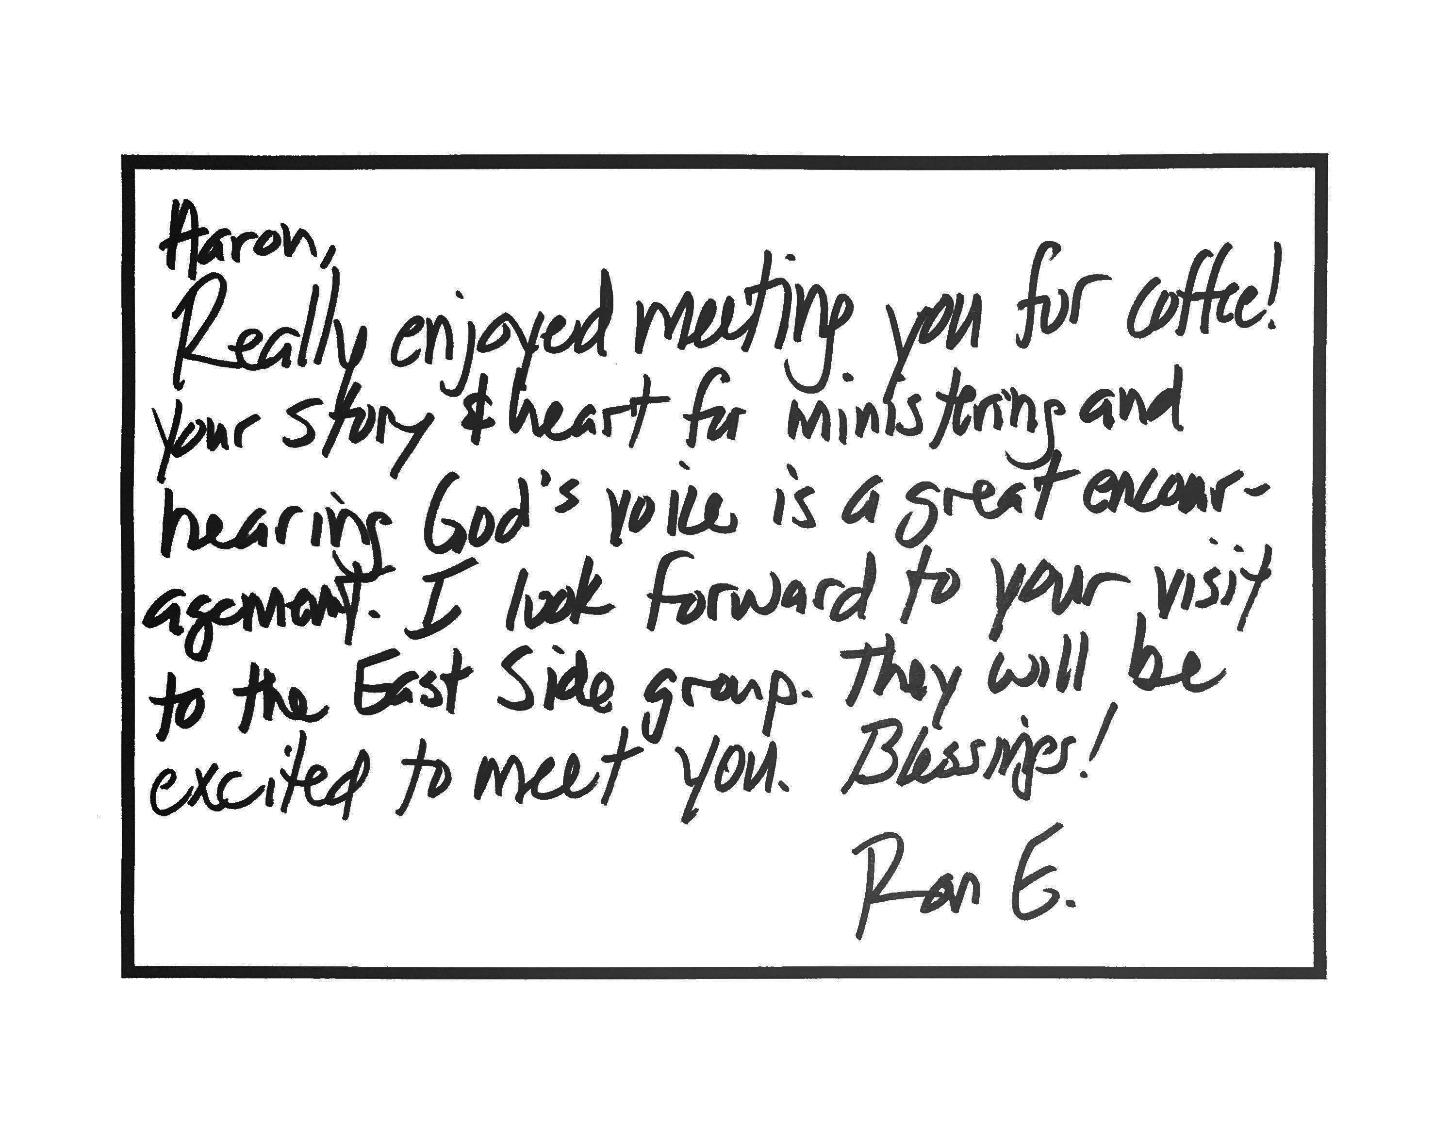 Aaron,
Really enjoyed meeting you for coffee!
Your story & heart for ministering and
hearing God's voice is a great encour-
agement. I look forward to your visit
to the East Side group. They will be
excited to meet you. Blessings!
Ron E.